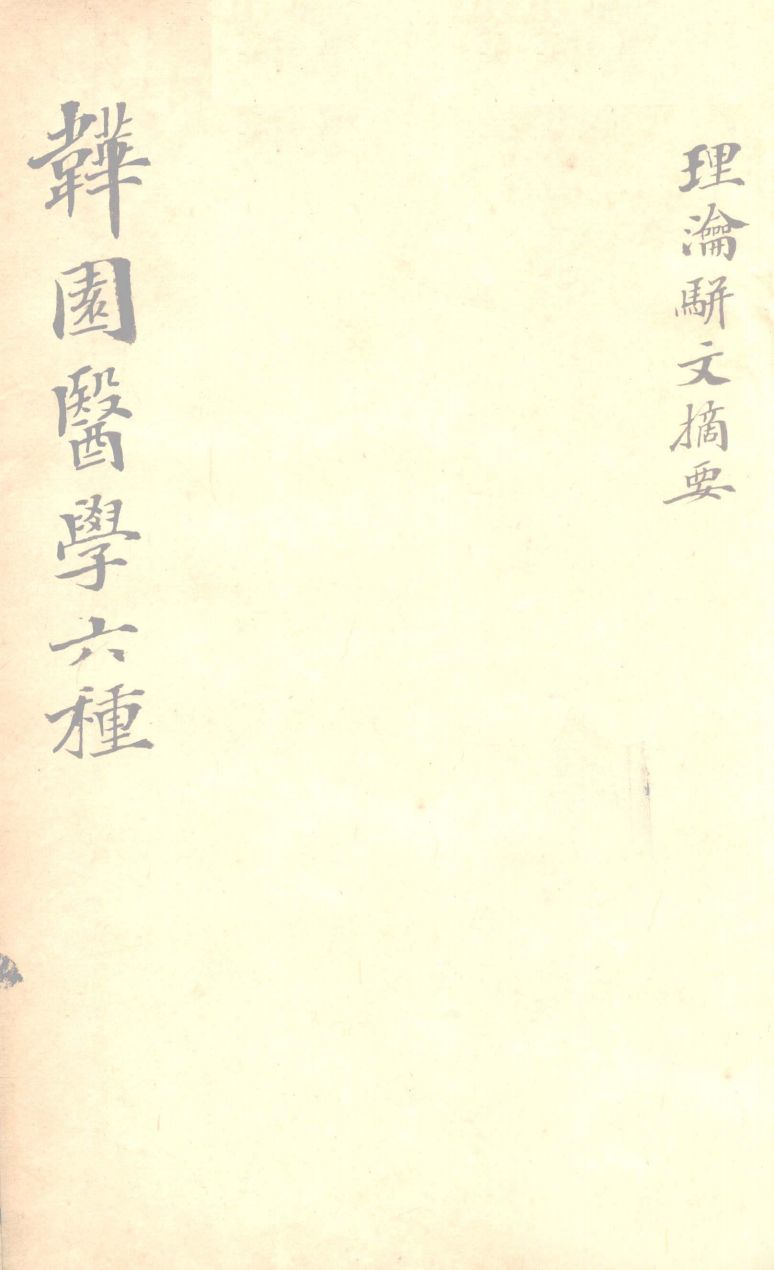 理瀹駢文摘要
韡園醫學六種